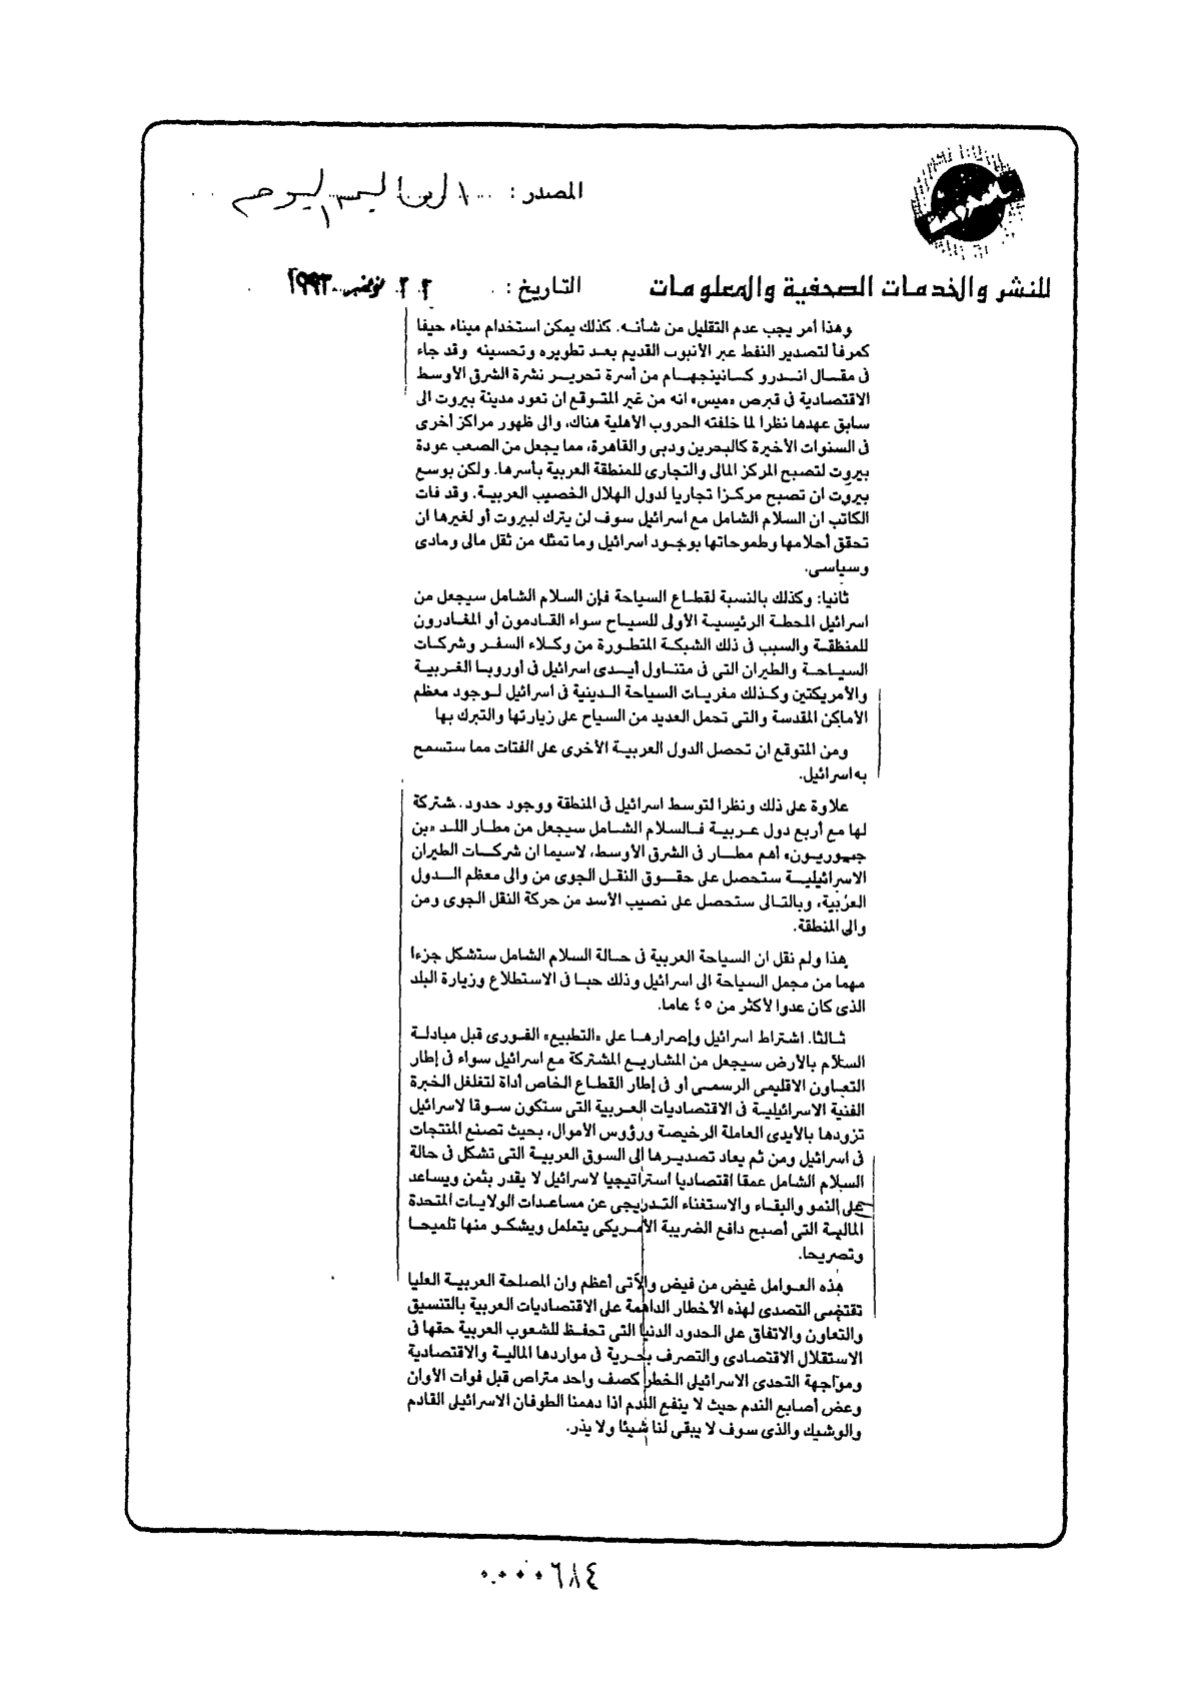 المصدر :
للنشر والخدمات الصحفية والمعلومات
التاريخ : ٢٢ نوفمبر ١٩٩٣
وهذا أمر يجب عدم التقليل من شأنه. كذلك يمكن استخدام ميناء حيفا
كمرفأ لتصدير النفط عبر الأنبوب القديم بعد تطويره وتحسينه وقد جاء
فى مقال اندرو كانينجهام من أسرة تحرير نشرة الشرق الأوسط
الاقتصادية فى قبرص «ميس» انه من غير المتوقع ان تعود مدينة بيروت الى
سابق عهدها نظرا لما خلفته الحروب الأهلية هناك، والى ظهور مراكز أخرى
فى السنوات الأخيرة كالبحرين ودبى والقاهرة، مما يجعل من الصعب عودة
بيروت لتصبح المركز المالى والتجارى للمنطقة العربية بأسرها. ولكن بوسع
بيروت ان تصبح مركزا تجاريا لدول الهلال الخصيب العربية. وقد فات
الكاتب ان السلام الشامل مع اسرائيل سوف لن يترك لبيروت أو لغيرها ان
تحقق أحلامها وطموحاتها بوجود اسرائيل وما تمثله من ثقل مالى ومادى
وسياسى.
ثانيا: وكذلك بالنسبة لقطاع السياحة فإن السلام الشامل سيجعل من
اسرائيل المحطة الرئيسية الأولى للسياح سواء القادمون أو المغادرون
للمنطقة والسبب فى ذلك الشبكة المتطورة من وكلاء السفر وشركات
السياحة والطيران التى فى متناول أيدى اسرائيل فى أوروبا الغربية
والأمريكتين وكذلك مغريات السياحة الدينية فى اسرائيل لوجود معظم
الأماكن المقدسة والتى تحمل العديد من السياح على زيارتها والتبرك بها
ومن المتوقع ان تحصل الدول العربية الأخرى على الفتات مما ستسمح
به اسرائيل.
علاوة على ذلك ونظرا لتوسط اسرائيل فى المنطقة ووجود حدود مشتركة
لها مع أربع دول عربية فالسلام الشامل سيجعل من مطار اللد «بن
جوريون» أهم مطار فى الشرق الأوسط، لاسيما ان شركات الطيران
الاسرائيلية ستحصل على حقوق النقل الجوى من والى معظم الدول
العربية، وبالتالى ستحصل على نصيب الأسد من حركة النقل الجوى ومن
والى المنطقة.
هذا ولم نقل ان السياحة العربية فى حالة السلام الشامل ستشكل جزءا
مهما من مجمل السياحة الى اسرائيل وذلك حبا فى الاستطلاع وزيارة البلد
الذى كان عدوا لأكثر من ٤٥ عاما.
ثالثا. اشتراط اسرائيل وإصرارها على «التطبيع» الفورى قبل مبادلة
السلام بالأرض سيجعل من المشاريع المشتركة مع اسرائيل سواء فى إطار
التعاون الاقليمى الرسمى أو فى إطار القطاع الخاص أداة لتغلغل الخبرة
الفنية الاسرائيلية فى الاقتصاديات العربية التى ستكون سوقا لاسرائيل
تزودها بالأيدى العاملة الرخيصة ورؤوس الأموال، بحيث تصنع المنتجات
فى اسرائيل ومن ثم يعاد تصديرها إلى السوق العربية التى تشكل فى حالة
السلام الشامل عمقا اقتصاديا استراتيجيا لاسرائيل لا يقدر بثمن ويساعد
على النمو والبقاء والاستغناء التدريجى عن مساعدات الولايات المتحدة
المالية التى أصبح دافع الضريبة الأمريكى يتململ ويشكو منها تلميحا
وتصريحا.
هذه العوامل غيض من فيض والآتى أعظم وان المصلحة العربية العليا
تقتضى التصدى لهذه الأخطار الداهمة على الاقتصاديات العربية بالتنسيق
والتعاون والاتفاق على الحدود الدنيا التى تحفظ للشعوب العربية حقها فى
الاستقلال الاقتصادى والتصرف بحرية فى مواردها المالية والاقتصادية
ومواجهة التحدى الاسرائيلى الخطر كصف واحد متراص قبل فوات الأوان
وعض أصابع الندم حيث لا ينفع الندم اذا دهمنا الطوفان الاسرائيلى القادم
والوشيك والذى سوف لا يبقى لنا شيئا ولا يذر.
٠.٠٠٠٦٨٤